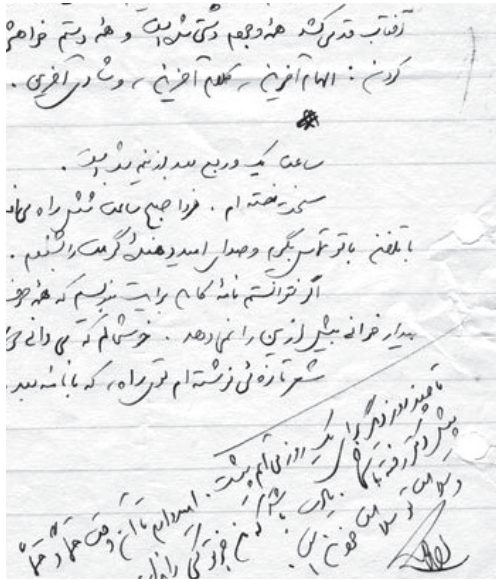 آفتاب قد می‌کشد همهٔ وجودم دستی شده است و همهٔ دستم خواهش
کردن: الهام آفرین، کلام آفرین، و شادی آفرین.
ساعت یک و ربع بعد از نیمه شب است.
سخت خسته‌ام. فردا صبح ساعت شش راه
با تلفن با تو تماس بگیرم و صدای امید دهندهٔ گرمت را بشنوم.
اگر نتوانستم نامهٔ کاملی برایت بنویسم که همه
بیدار خوابی بیش از این را نمی‌دهد. خوشحالم که می‌دانی
شعر تازه‌ئی نوشته‌ام توی راه، که با نامه بعد
تا چند روز دیگر برای یک روز می‌آیم پیشت. امیدوارم تا آن وقت حتماً و حتماً
پیش دکتر رفته باشی. یادت باشد که من
و سلامت تو سلامت خود من است.